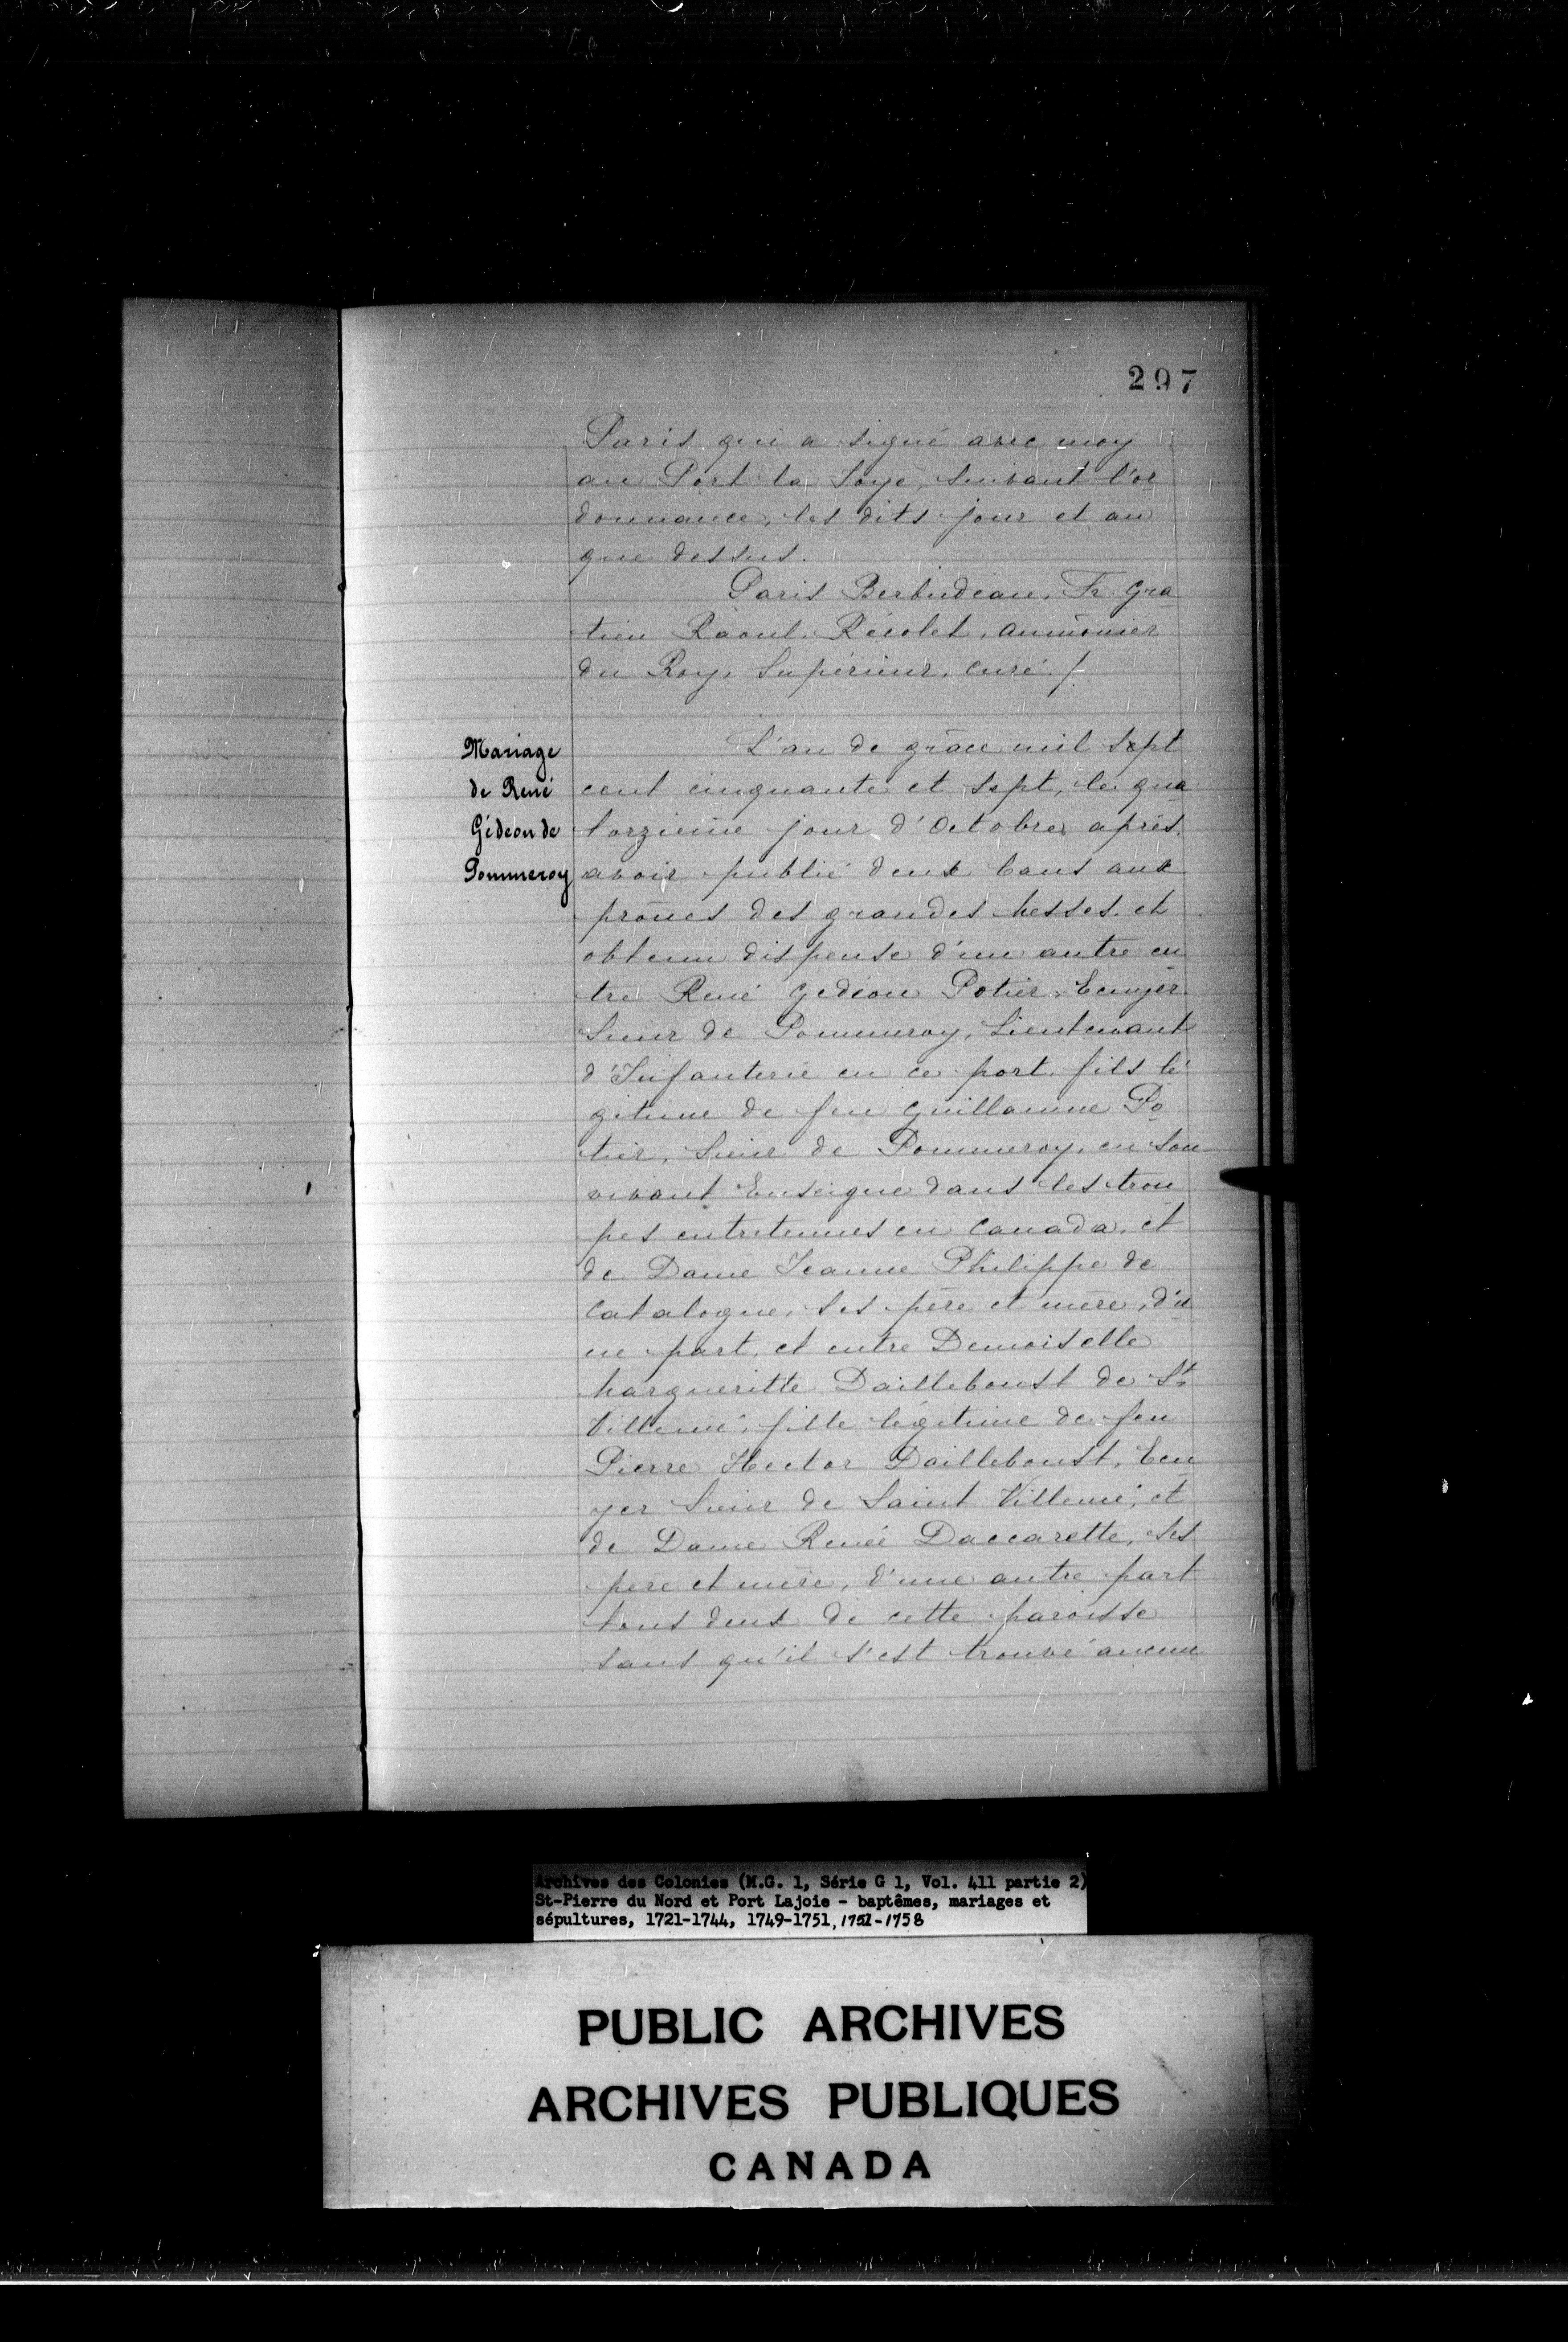 297
Paris qui a signé avec moy
au Port la Joye, suivant l'or
donnance, les dits jour et an
que dessus.
Paris Berbudeau. Fr. Gra
tien Raoul, Récolet, aumônier
du Roy, Supérieur, curé. /.
Mariage
de René
Gédeon de
Pommeroy
L'an de grâce mil sept
cent cinquante et sept, le qua
torzième jour d'Octobre, après
avoir publié deux bans aux
prônes des grandes Messes et
obtenu dispense d'un autre en
tre René Gedeon Potier, Ecuyer
Sieur de Pommeroy, Lieutenant
d'Infanterie en ce port, fils lé
gitime de feu Guillaume Po
tier, Sieur de Pommeroy, en son
vivant Enseigne dans les trou
pes entretenues en Canada, et
de Dame Jeanne Philippe de
Catalogne, ses père et mère, d'u
ne part, et entre Demoiselle
Margueritte Dailleboust de St
Villemé, fille légitime de feu
Pierre Hector Dailleboust, Ecu
yer Sieur de Saint Villemé, et
de Dame Renée Daccarette, ses
père et mère, d'une autre part
tous deux de cette paroisse
sans qu'il s'est trouvé aucun
Archives des Colonies (M.G. 1, Série G 1, Vol. 411 partie 2)
St-Pierre du Nord et Port Lajoie - baptêmes, mariages et
sépultures, 1721-1744, 1749-1751, 1752-1758
PUBLIC ARCHIVES
ARCHIVES PUBLIQUES
CANADA